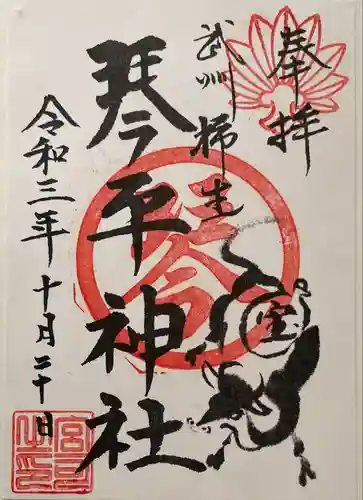 奉拝
武州柿生
琴平神社
令和三年十月二十日
宝